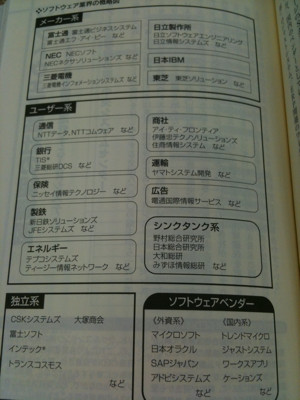 ◇ソフトウェア業界の概略図
メーカー系
富士通 富士通ビジネスシステム
富士通エフ・アイ・ピー など
NEC NECソフト
NECネクサソリューションズ など
三菱電機
三菱電機インフォメーションシステムズ など
日立製作所
日立ソフトウェアエンジニアリング
日立情報システムズ など
日本IBM
東芝 東芝ソリューション など
ユーザー系
通信
NTTデータ、NTTコムウェア など
銀行
TIS*
三菱総研DCS など
保険
ニッセイ情報テクノロジー など
製鉄
新日鉄ソリューションズ
JFEシステムズ など
エネルギー
テプコシステムズ
ティージー情報ネットワーク など
商社
アイ・ティ・フロンティア
伊藤忠テクノソリューションズ
住商情報システム など
運輸
ヤマトシステム開発 など
広告
電通国際情報サービス など
シンクタンク系
野村総合研究所
日本総合研究所
大和総研
みずほ情報総研 など
独立系
CSKシステムズ 大塚商会
富士ソフト
インテック*
トランスコスモス
など
ソフトウェアベンダー
《外資系》 《国内系》
マイクロソフト トレンドマイクロ
日本オラクル ジャストシステム
SAPジャパン ワークスアプリ
アドビシステムズ ケーションズ
など など